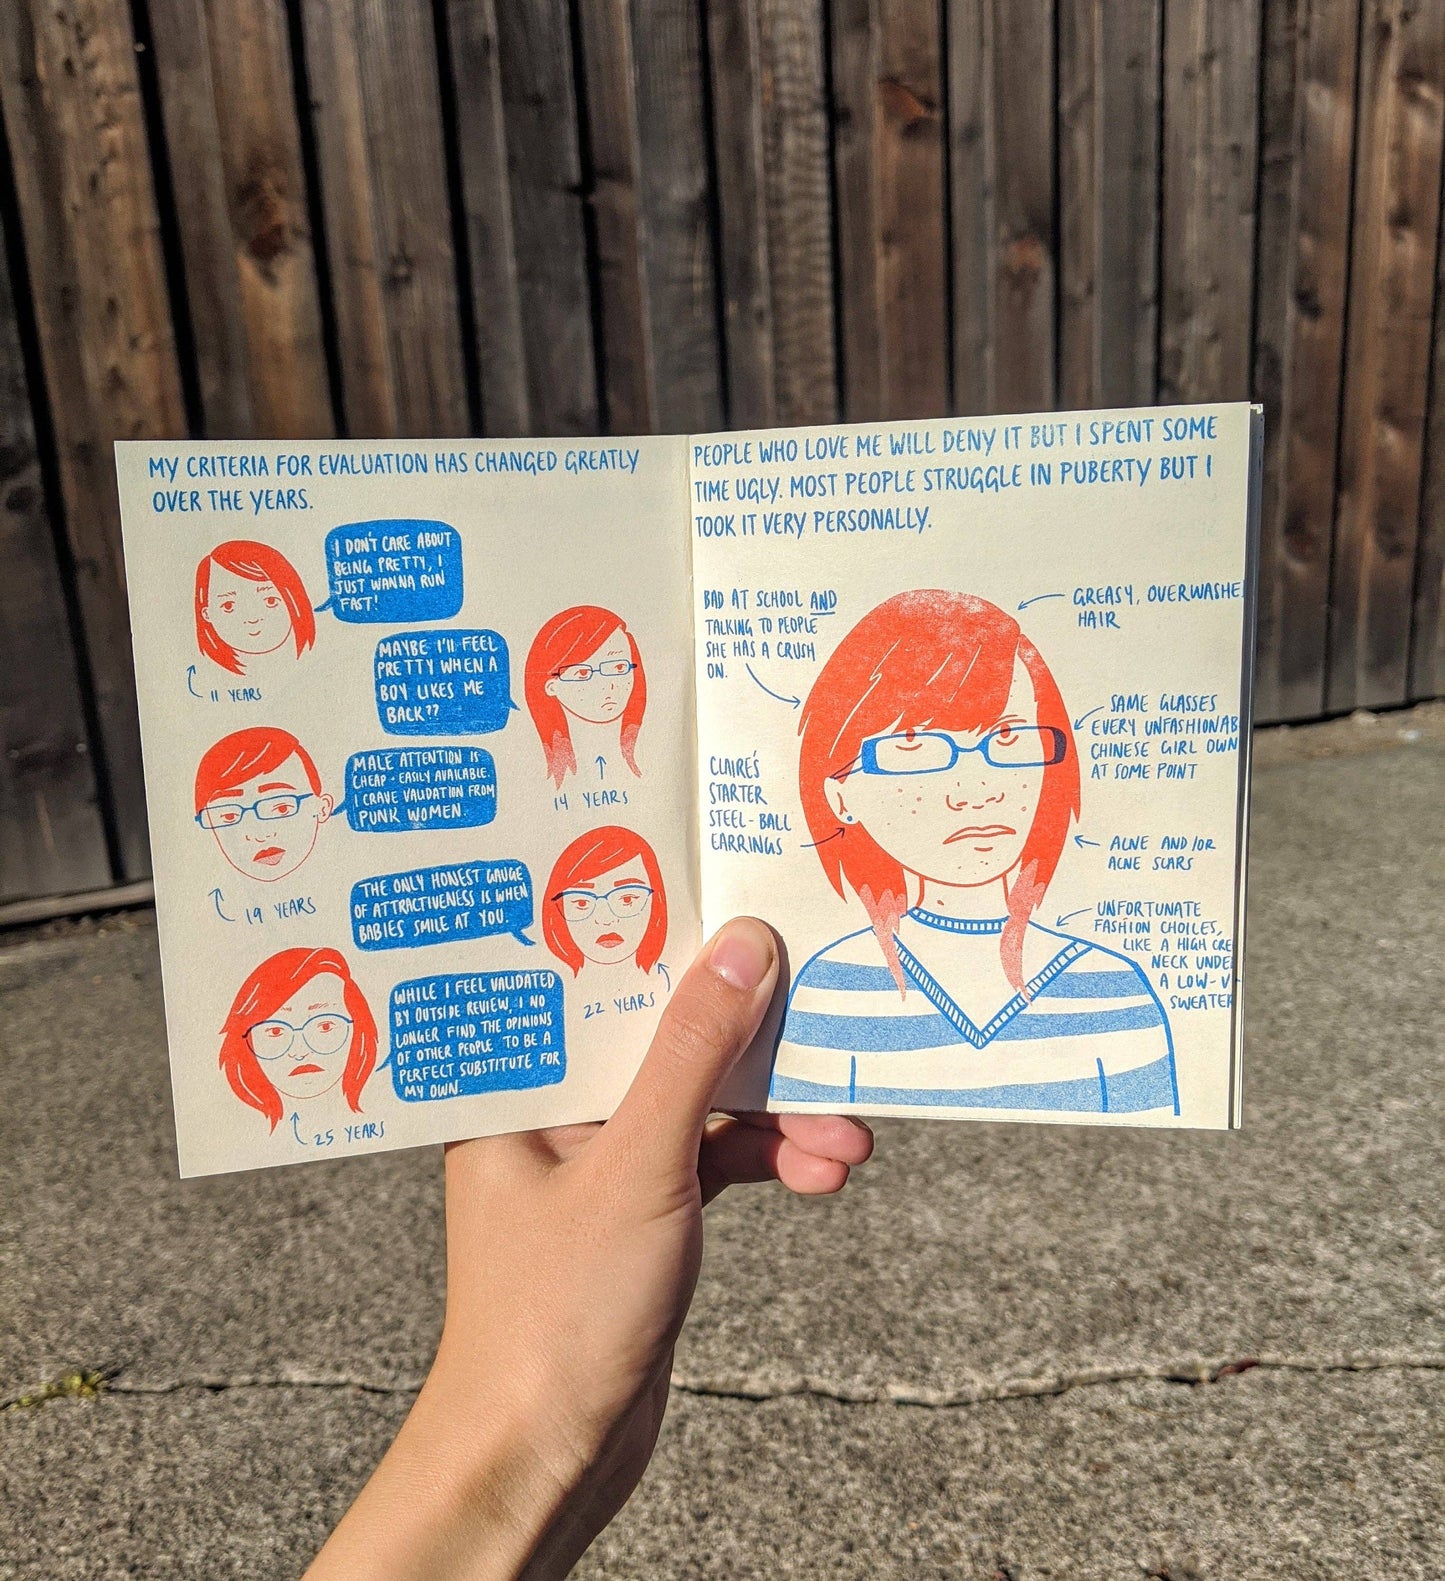 MY CRITERIA FOR EVALUATION HAS CHANGED GREATLY
OVER THE YEARS.
I DON'T CARE ABOUT
BEING PRETTY, I
JUST WANNA RUN
FAST!
11 YEARS
MAYBE I'll FEEL
PRETTY WHEN A
BOY LIKES ME
BACK??
14 YEARS
MALE ATTENTION IS
CHEAP - EASILY AVAILABLE.
I CRAVE VALIDATION FROM
PUNK WOMEN.
19 YEARS
THE ONLY HONEST GAUGE
OF ATTRACTIVENESS IS WHEN
BABIES SMILE AT YOU.
22 YEARS
WHILE I FEEL VALIDATED
BY OUTSIDE REVIEW, I NO
LONGER FIND THE OPINIONS
OF OTHER PEOPLE TO BE A
PERFECT SUBSTITUTE FOR
MY OWN.
25 YEARS
PEOPLE WHO LOVE ME WILL DENY IT BUT I SPENT SOME
TIME UGLY. MOST PEOPLE STRUGGLE IN PUBERTY BUT I
TOOK IT VERY PERSONALLY.
BAD AT SCHOOL AND
TALKING TO PEOPLE
SHE HAS A CRUSH
ON.
GREASY, OVERWASHE
HAIR
SAME GLASSES
EVERY UNFASHIONAB
CHINESE GIRL OWN
AT SOME POINT
CLAIRE'S
STARTER
STEEL-BALL
EARRINGS
ACNE AND/OR
ACNE SCARS
UNFORTUNATE
FASHION CHOICES,
LIKE A HIGH CRE
NECK UNDE
A LOW-V
SWEATER